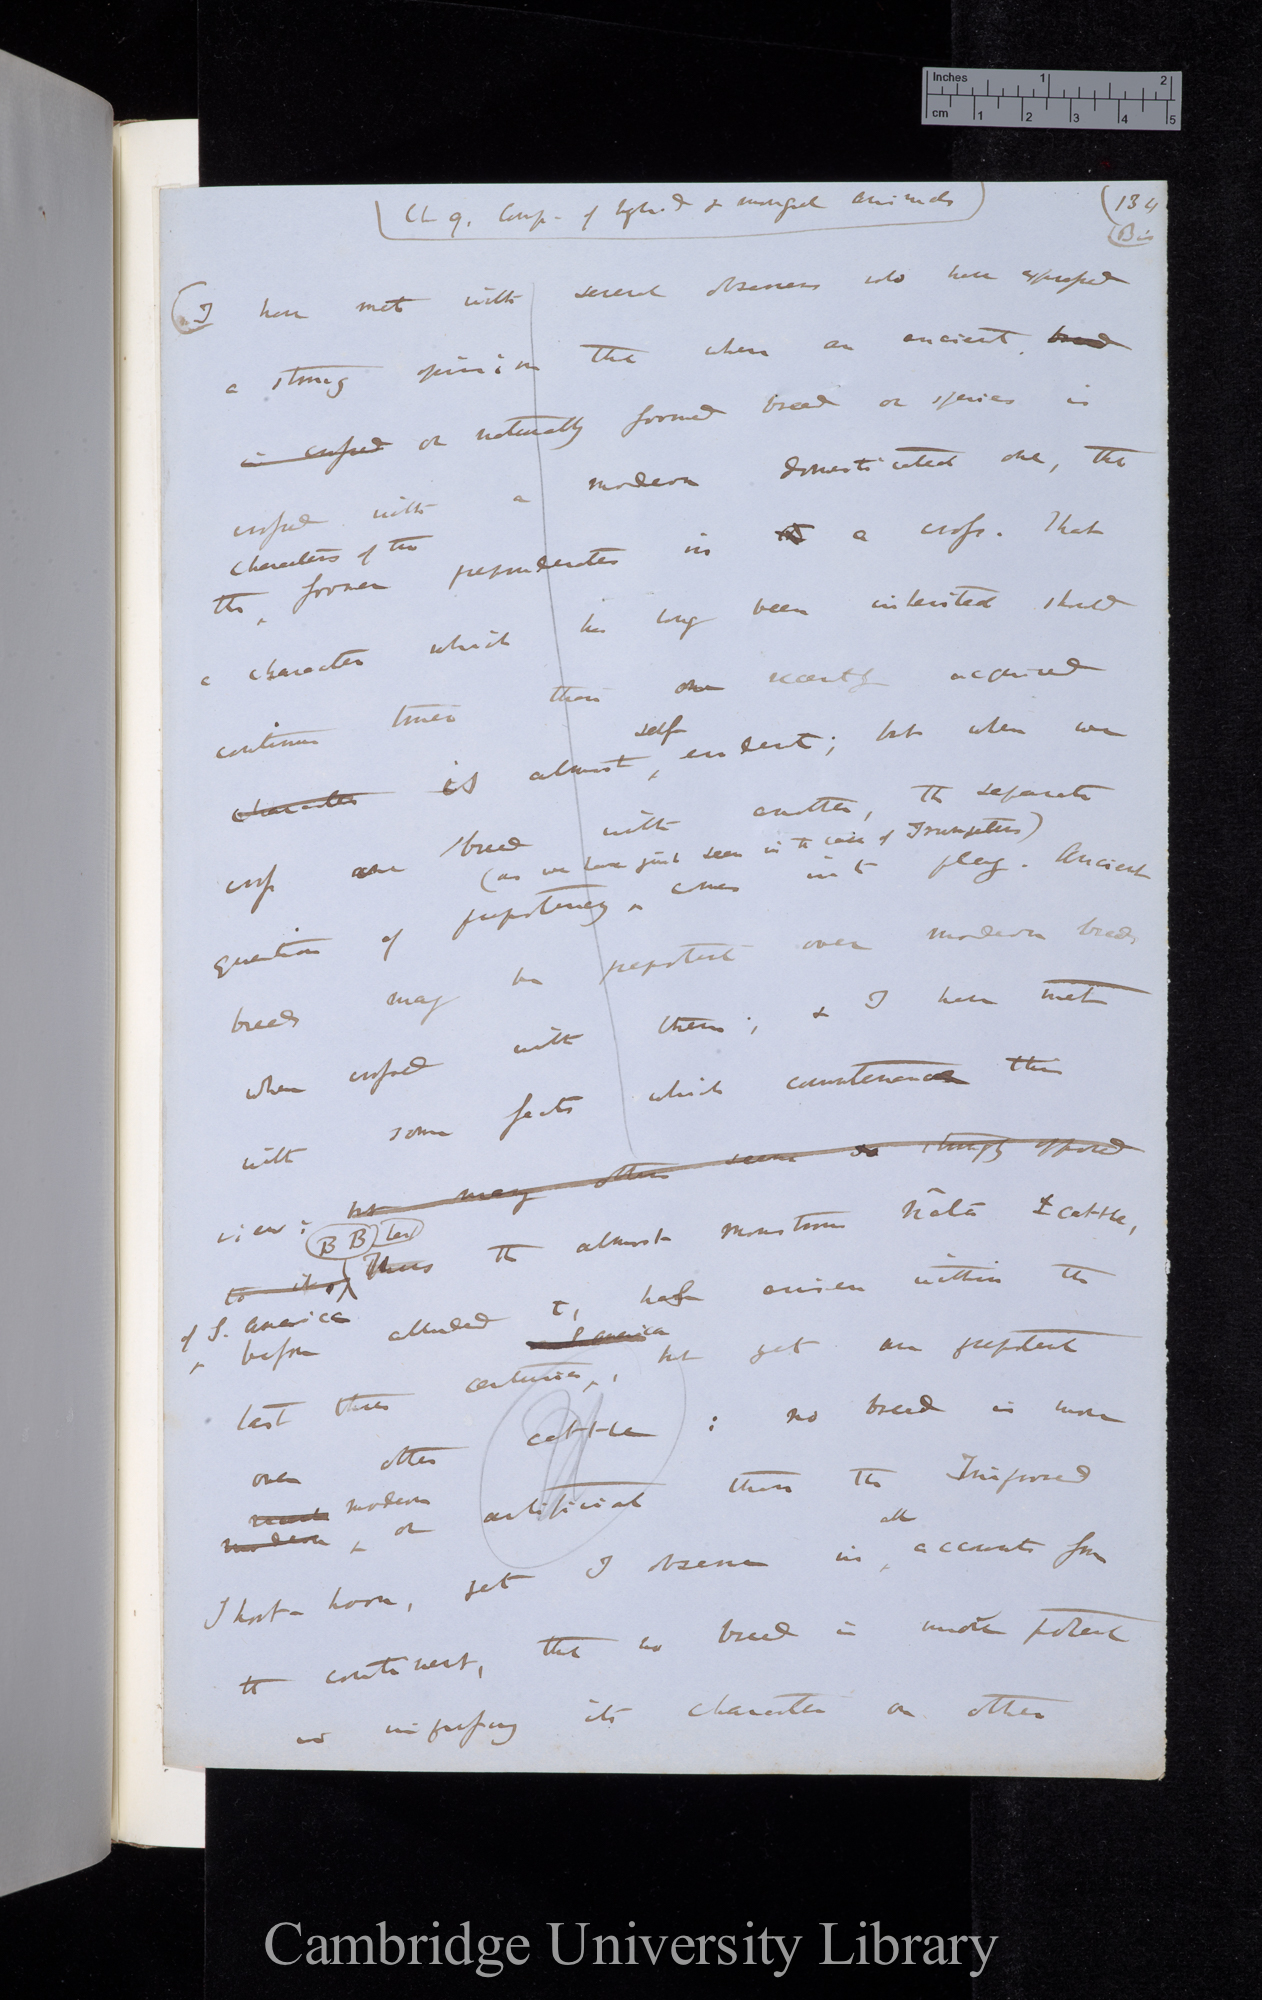 Inches 1 2
cm 1 2 3 4 5
Ch 9. Comp. of hybrid & mongrel animals
134
Bis
I have met with several observers who have expressed
a strong opinion that when an ancient, breed
is crossed or naturally formed breed or species is
crossed with a modern domesticated one, the
characters of the
the former preponderates in a cross. That
a character which has long been inherited should
continue truer than one recently acquired
self
character is almost evident; but when we
cross one breed with another, the separate
(as we have just seen in the case of Trumpeters)
question of prepotency comes into play. Ancient
breeds may be prepotent over modern breeds
when crossed with them; & I have met
with some facts which countenance this
view: but may others seem so strongly opposed
B B text
to it, Thus the almost monstrous Nãta cattle,
of S. America
before alluded to, have arisen within the
S America
last three centuries, but yet are prepotent
over other cattle: no breed is more
modern
modern or artificial than the Improved
all
Short-horn, yet I observe in accounts from
the continent, that no breed is more potent
in impressing its character on other
Cambridge University Library